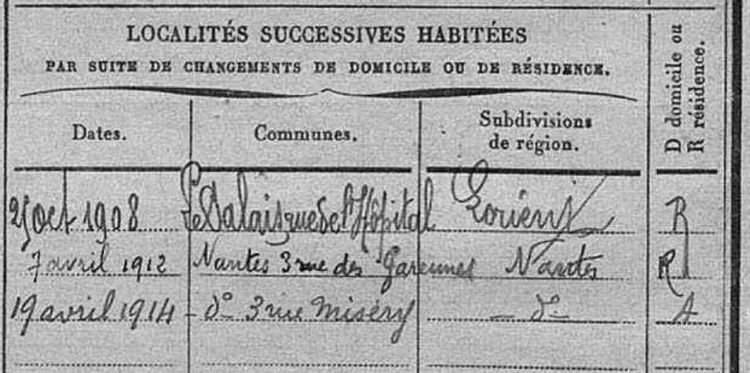 LOCALITÉS SUCCESSIVES HABITÉES
PAR SUITE DE CHANGEMENTS DE DOMICILE OU DE RÉSIDENCE.
Dates. Communes. Subdivisions de région. D domicile ou R résidence.
oct 1908 Le Palais rue de l'Hôpital Lorient R
7 avril 1912 Nantes 3 rue des Garennes Nantes R
19 avril 1914 - d° 3 rue Miséry - d°